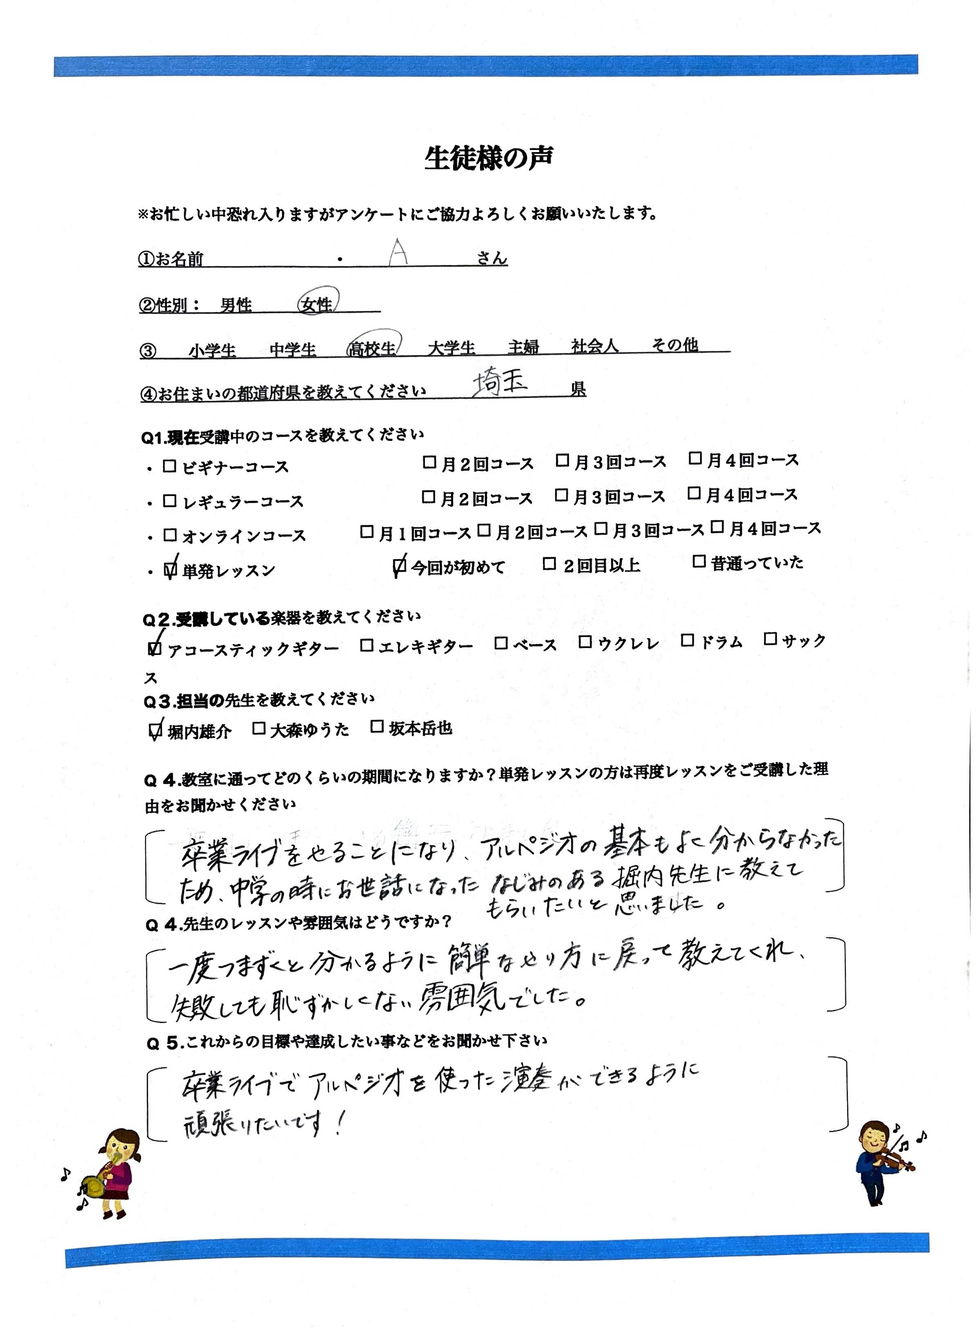 生徒様の声
※お忙しい中恐れ入りますがアンケートにご協力よろしくお願いいたします。
①お名前 ・ A さん
②性別： 男性 女性
③ 小学生 中学生 高校生 大学生 主婦 社会人 その他
④お住まいの都道府県を教えてください 埼玉 県
Q1.現在受講中のコースを教えてください
・□ビギナーコース □月２回コース □月３回コース □月４回コース
・□レギュラーコース □月２回コース □月３回コース □月４回コース
・□オンラインコース □月１回コース□月２回コース□月３回コース□月４回コース
・☑単発レッスン ☑今回が初めて □２回目以上 □昔通っていた
Q２.受講している楽器を教えてください
☑アコースティックギター □エレキギター □ベース □ウクレレ □ドラム □サック
ス
Q３.担当の先生を教えてください
☑堀内雄介 □大森ゆうた □坂本岳也
Q ４.教室に通ってどのくらいの期間になりますか？単発レッスンの方は再度レッスンをご受講した理
由をお聞かせください
卒業ライブをやることになり、アルペジオの基本もよく分からなかった
ため、中学の時にお世話になった なじみのある堀内先生に教えて
もらいたいと思いました。
Q ４.先生のレッスンや雰囲気はどうですか？
一度つまずくと分かるように簡単なやり方に戻って教えてくれ、
失敗しても恥ずかしくない雰囲気でした。
Q ５.これからの目標や達成したい事などをお聞かせ下さい
卒業ライブでアルペジオを使った演奏ができるように
頑張りたいです！